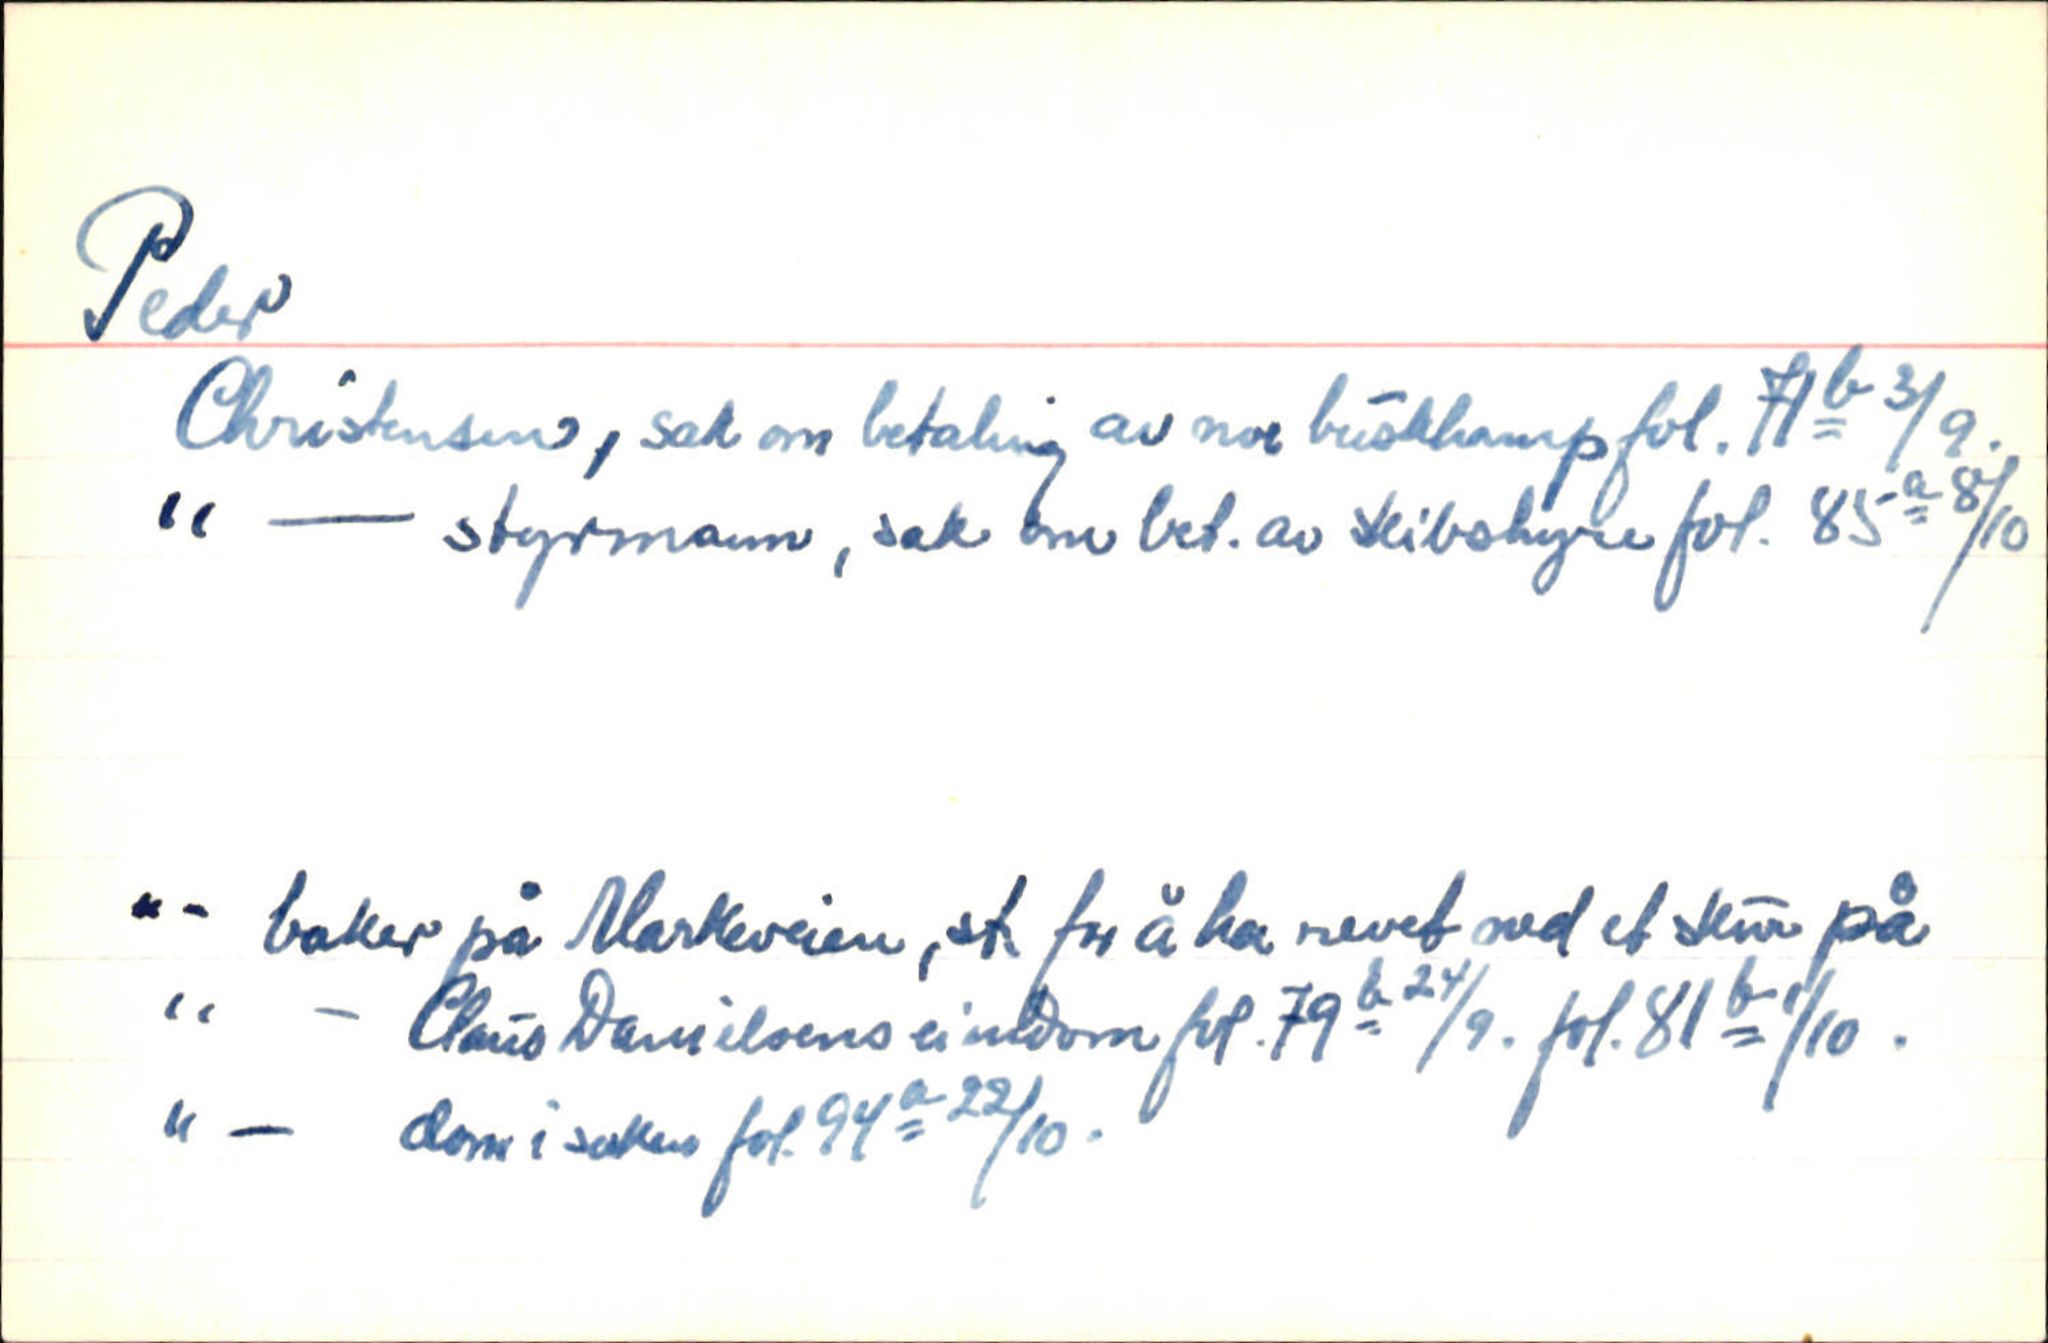 Peder
Christensen, sak om betaling av noe fol. 71b 3/9.
" — styrmann, sak om bet. av skibshyre fol. 85a 8/10
"- baker på Markeveien, st. for å ha revet ned et skur på
" - Claus Danielsens eindom fol. 79b 24/9. fol. 81b 1/10.
" — dom i saken fol. 94a 22/10.